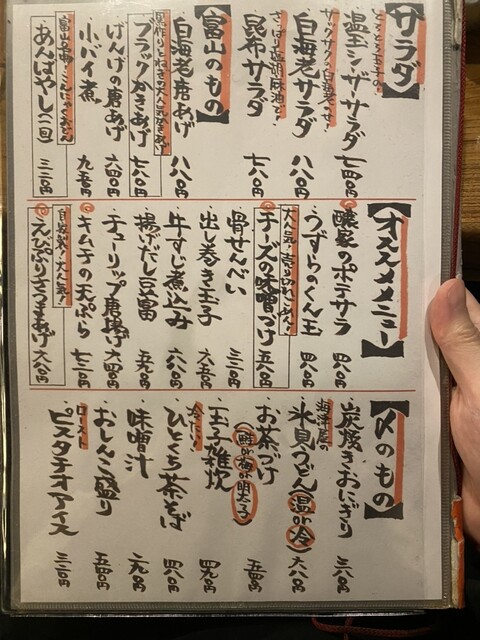 【サラダ】
温玉シーザーサラダ 七四〇円
サクサク白海老のせ!
白海老サラダ 八八〇円
さっぱり塩胡麻油で!
昆布サラダ 七八〇円
【富山のもの】
白海老唐あげ 八八〇円
ブラックかきあげ 七八〇円
げんげの唐あげ 六四〇円
小バイ煮 九五〇円
あんばやし(二白) 三二〇円
【オススメメニュー】
醸家のポテサラ 四八〇円
うずらのくん玉 四八〇円
大人気!売り切れごめん!
チーズの味噌づけ 五八〇円
骨せんべい 三二〇円
出し巻き玉子 六五〇円
牛すじ煮込み 六八〇円
揚げだし豆冨 五九〇円
チューリップ唐揚げ 六四〇円
キムチの天ぷら 七二〇円
自家製!大人気!
えびぷりさつまあげ 六八〇円
【〆のもの】
炭焼きおにぎり 三八〇円
海津屋の
氷見うどん(温or冷) 六八〇円
お茶づけ (鮭or梅or明太子) 五四〇円
玉子雑炊 四九〇円
冷たい!
ひとくち茶そば 四八〇円
味噌汁 二九〇円
おしんこ盛り 五四〇円
ロースト
ピスタチオアイス 三二〇円